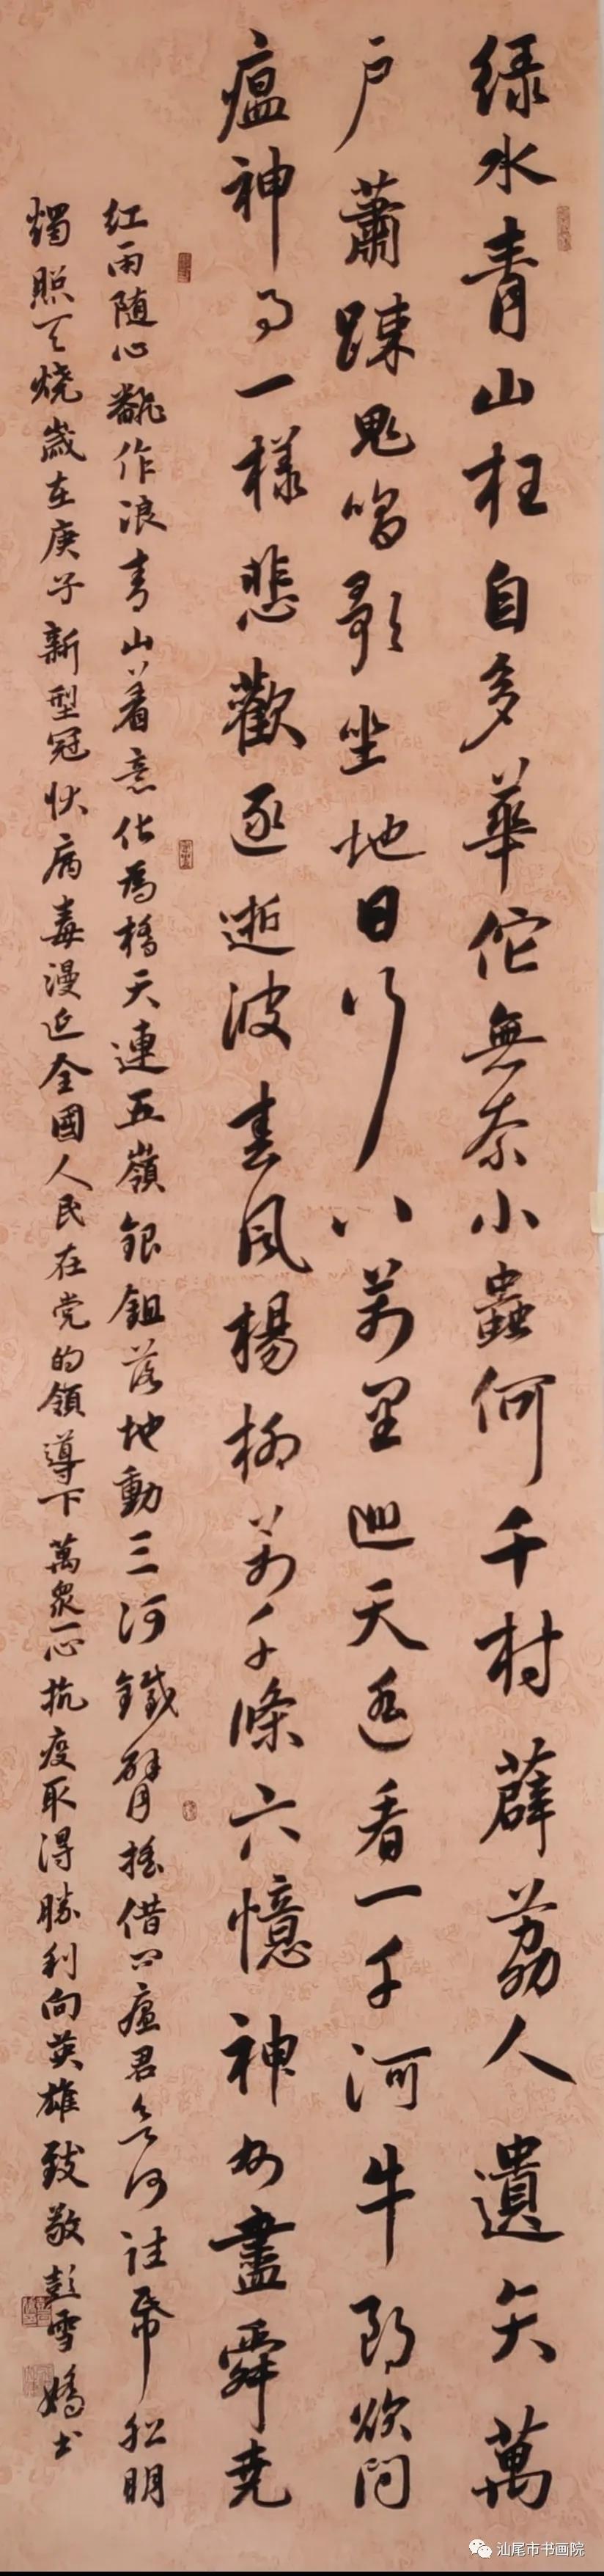 绿水青山枉自多華佗無奈小蟲何千村薜荔人遺矢萬
户蕭踈鬼唱歌坐地日行八万里巡天遥看一千河牛郎欲问
瘟神事一樣悲歡逐逝波春风楊柳万千條六憶神州盡舜尧
红雨随心翻作浪青山着意化為橋天連五嶺銀鉏落地動三河鐵臂摇借问瘟君欲何往紙船明
燭照天烧歲在庚子新型冠状病毒漫延全國人民在党的領導下萬众一心抗疫取得勝利向英雄致敬彭雪嬌书
汕尾市书画院